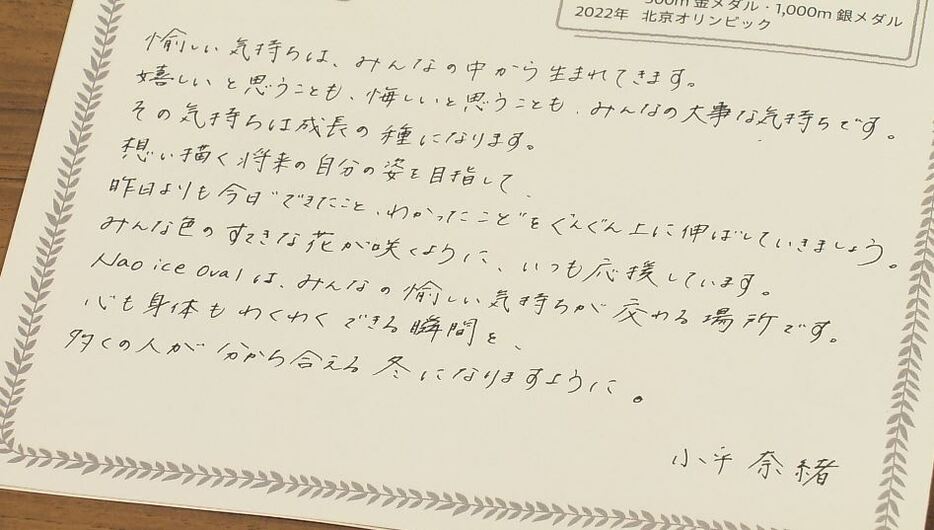 500m 金メダル・1,000m 銀メダル
2022年 北京オリンピック
愉しい気持ちは、みんなの中から生まれてきます。
嬉しいと思うことも、悔しいと思うことも、みんなの大事な気持ちです。
その気持ちは成長の種になります。
想い描く将来の自分の姿を目指して、
昨日よりも今日"できたこと、わかったこと"をぐんぐん上に伸ばしていきましょう。
みんな色のすてきな花が咲くように、いつも応援しています。
Nao ice Ovalは、みんなの愉しい気持ちが交わる場所です。
心も身体もわくわくできる瞬間を、
多くの人が分から合える冬になりますように。
小平奈緒